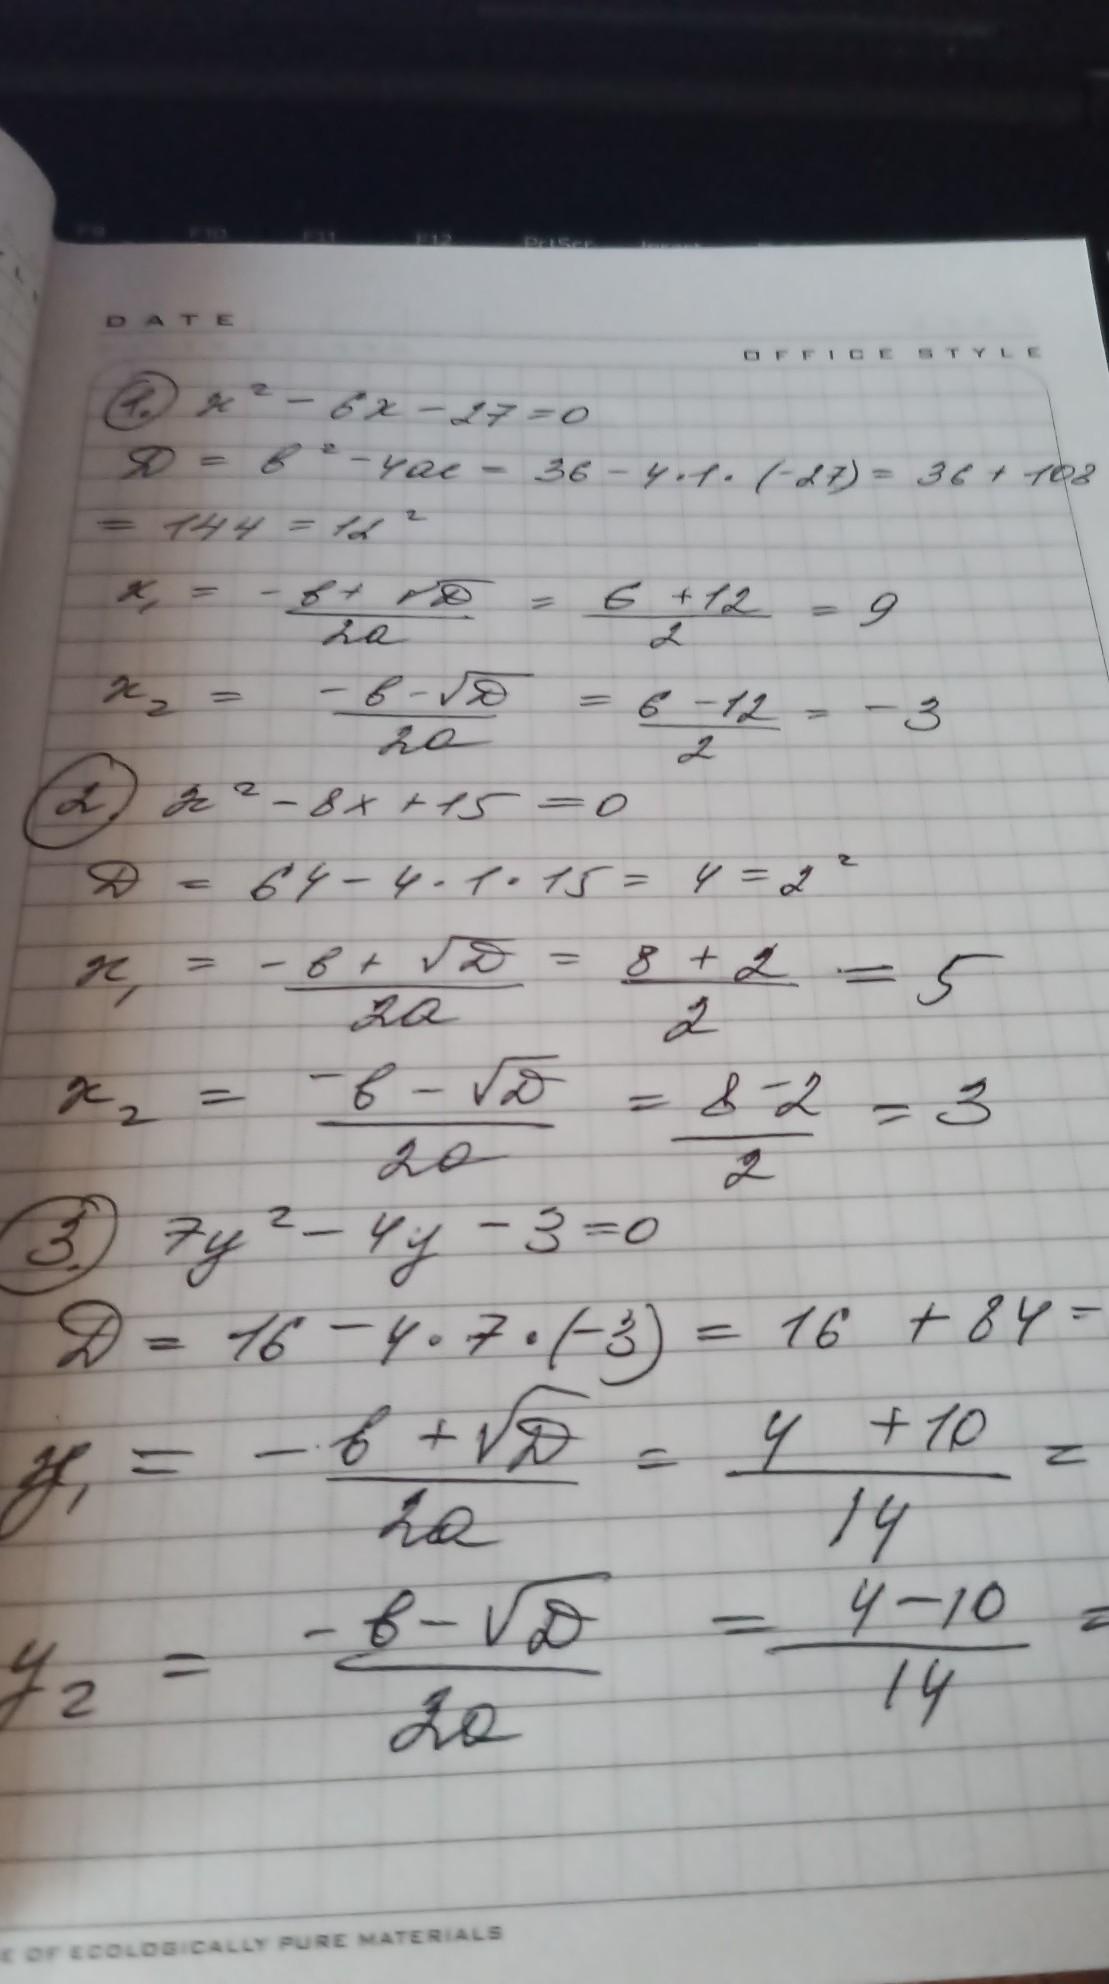 F9 F10 F11 F12 PrtScr Insert
DATE
OFFICE STYLE
1. x² - 6x - 27 = 0
D = b² - 4ac = 36 - 4·1·(-27) = 36 + 108
= 144 = 12²
x₁ = (-b + √D)/2a = (6 + 12)/2 = 9
x₂ = (-b - √D)/2a = (6 - 12)/2 = -3
2. x² - 8x + 15 = 0
D = 64 - 4·1·15 = 4 = 2²
x₁ = (-b + √D)/2a = (8 + 2)/2 = 5
x₂ = (-b - √D)/2a = (8 - 2)/2 = 3
3. 7y² - 4y - 3 = 0
D = 16 - 4·7·(-3) = 16 + 84 =
y₁ = (-b + √D)/2a = (4 + 10)/14 =
y₂ = (-b - √D)/2a = (4 - 10)/14 =
E OF ECOLOGICALLY PURE MATERIALS